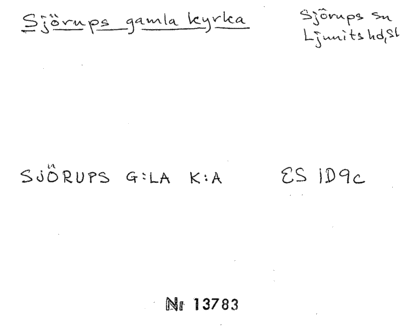 Sjörups gamla kyrka
Sjörups sn
Ljunits hd, Sk
SJÖRUPS G:LA K:A
ES 1D9c
Nr 13783